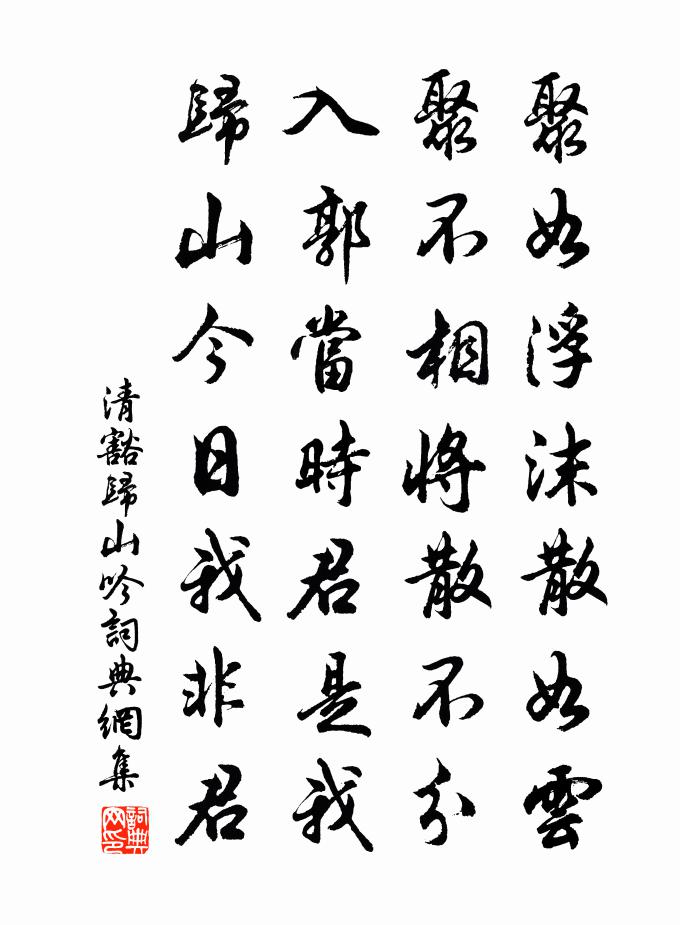 聚如浮沫散如雲
聚不相將散不分
入郭當時君是我
歸山今日我非君
清豁歸山吟詞典網集
詞典网印